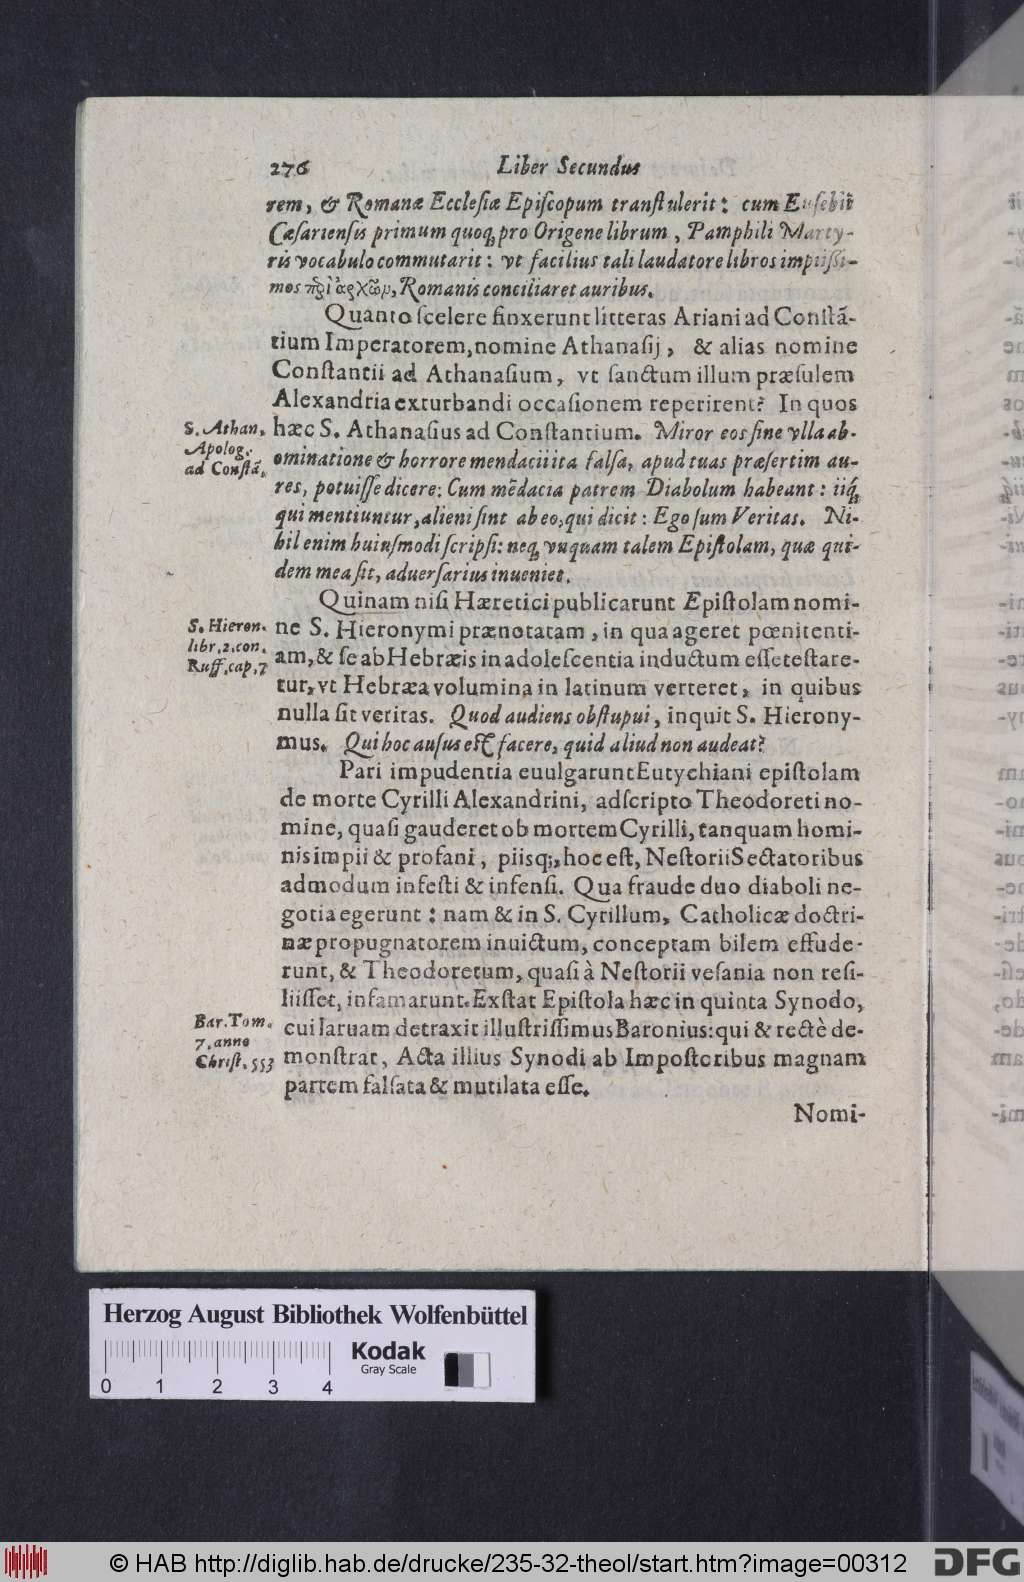 276 Liber Secundus
rem, & Romanæ Ecclesiæ Episcopum transtulerit: cum Eusebii
Cæsariensis primum quoq; pro Origene librum, Pamphili Marty-
ris vocabulo commutarit: vt facilius tali laudatore libros impiissi-
mos περὶ ἀρχῶν, Romanis conciliaret auribus.
Quanto scelere finxerunt litteras Ariani ad Constã-
tium Imperatorem, nomine Athanasij, & alias nomine
Constantii ad Athanasium, vt sanctum illum præsulem
Alexandria exturbandi occasionem reperirent? In quos
S. Athan. Apolog. ad Constã.
hæc S. Athanasius ad Constantium. Miror eos sine vlla ab-
ominatione & horrore mendacii ita falsa, apud tuas præsertim au-
res, potuisse dicere: Cum mẽdacia patrem Diabolum habeant: iiq́;
qui mentiuntur, alieni sint ab eo, qui dicit: Ego sum Veritas. Ni-
hil enim huiusmodi scripsi: neq; vnquam talem Epistolam, quæ qui-
dem mea sit, aduersarius inueniet.
Quinam nisi Hæretici publicarunt Epistolam nomi-
S. Hieron. libr. 2. con. Ruff. cap. 7
ne S. Hieronymi prænotatam, in qua ageret pœnitenti-
am, & se ab Hebræis in adolescentia inductum esse testare-
tur, vt Hebræa volumina in latinum verteret, in quibus
nulla sit veritas. Quod audiens obstupui, inquit S. Hierony-
mus. Qui hoc ausus est facere, quid aliud non audeat?
Pari impudentia euulgarunt Eutychiani epistolam
de morte Cyrilli Alexandrini, adscripto Theodoreti no-
mine, quasi gauderet ob mortem Cyrilli, tanquam homi-
nis impii & profani, piisq;, hoc est, Nestorii Sectatoribus
admodum infesti & infensi. Qua fraude duo diaboli ne-
gotia egerunt: nam & in S. Cyrillum, Catholicæ doctri-
næ propugnatorem inuictum, conceptam bilem effude-
runt, & Theodoretum, quasi à Nestorii vesania non resi-
liisset, infamarunt. Exstat Epistola hæc in quinta Synodo,
Bar. Tom. 7. anno Christ. 553
cui laruam detraxit illustrissimus Baronius: qui & rectè de-
monstrat, Acta illius Synodi ab Impostoribus magnam
partem falsata & mutilata esse.
Nomi-
Herzog August Bibliothek Wolfenbüttel
Kodak
Gray Scale
0 1 2 3 4
© HAB http://diglib.hab.de/drucke/235-32-theol/start.htm?image=00312
DFG